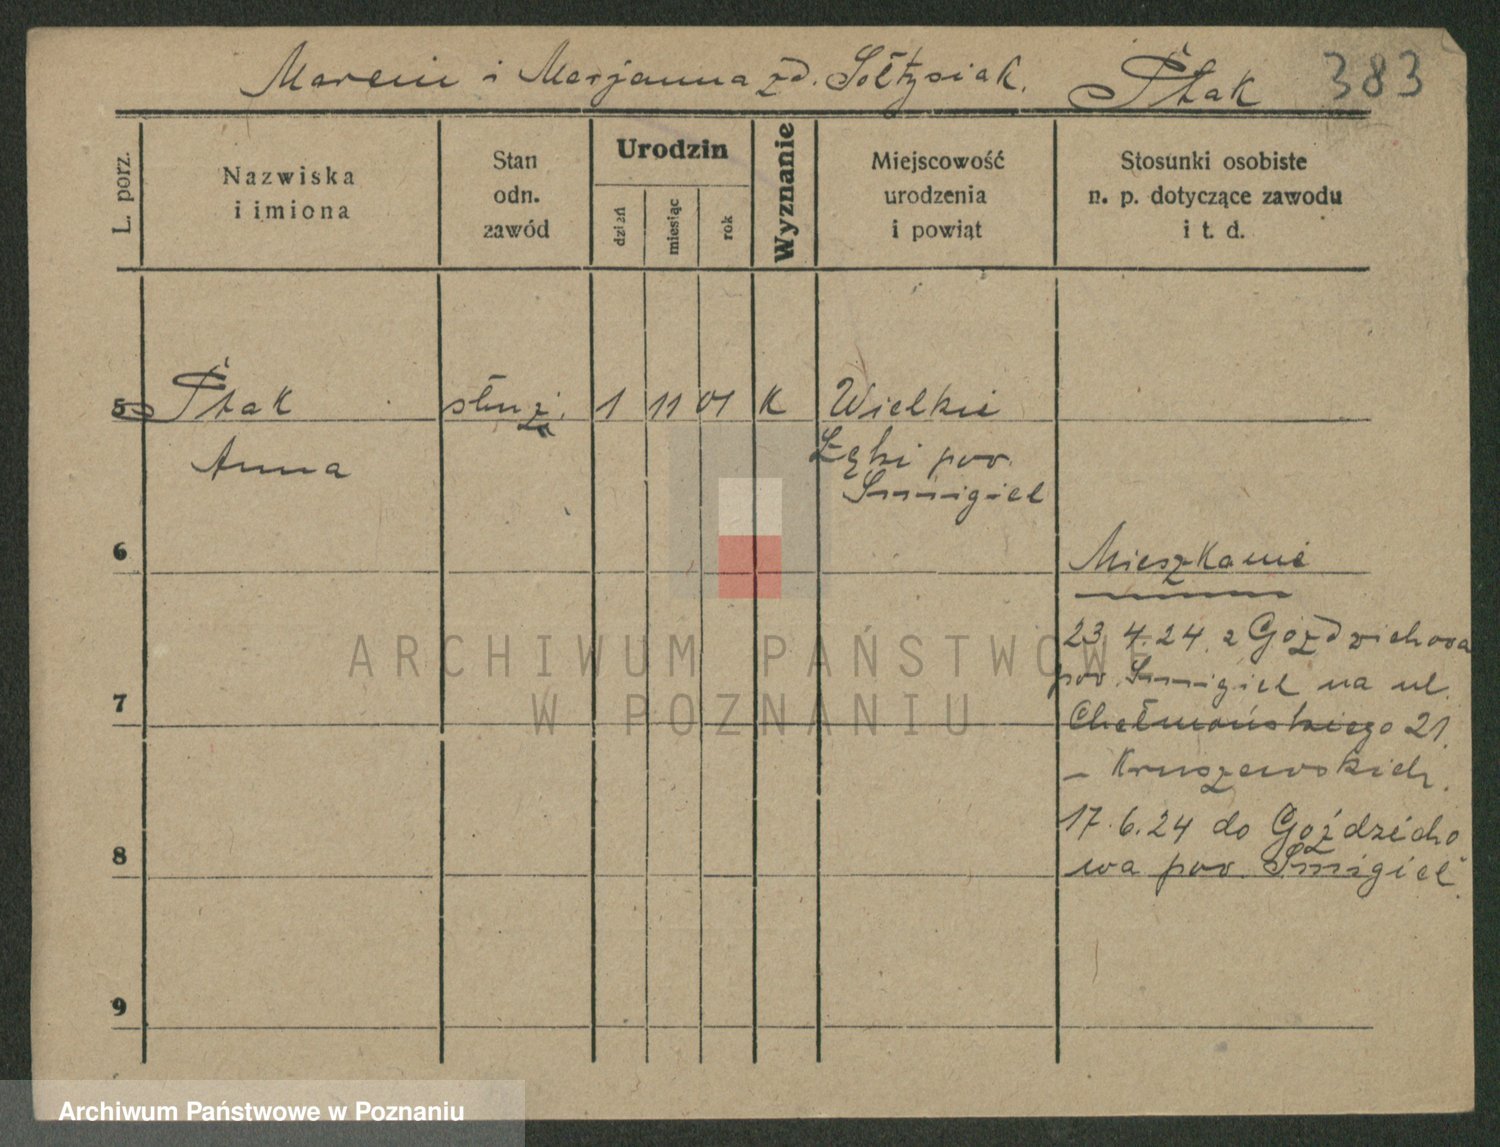 Marcin i Marjanna zd. Sołtysiak. Ptak 383
L. porz.
Nazwiska
i imiona
Stan
odn.
zawód
Urodzin
dzień
miesiąc
rok
Wyznanie
Miejscowość
urodzenia
i powiąt
Stosunki osobiste
n. p. dotyczące zawodu
i t. d.
5 Ptak służ. 1 11 01 K Wielkie
Anna Łęki pow.
Śmigiel
6 Mieszkanie
23.4.24. z Goździchowa
pow. Śmigiel na ul.
7 Chełmońskiego 21.
– Kruszewskich.
17.6.24 do Goździcho
8 wa pow. Śmigiel.
9
ARCHIWUM PAŃSTWOWE
W POZNANIU
Archiwum Państwowe w Poznaniu